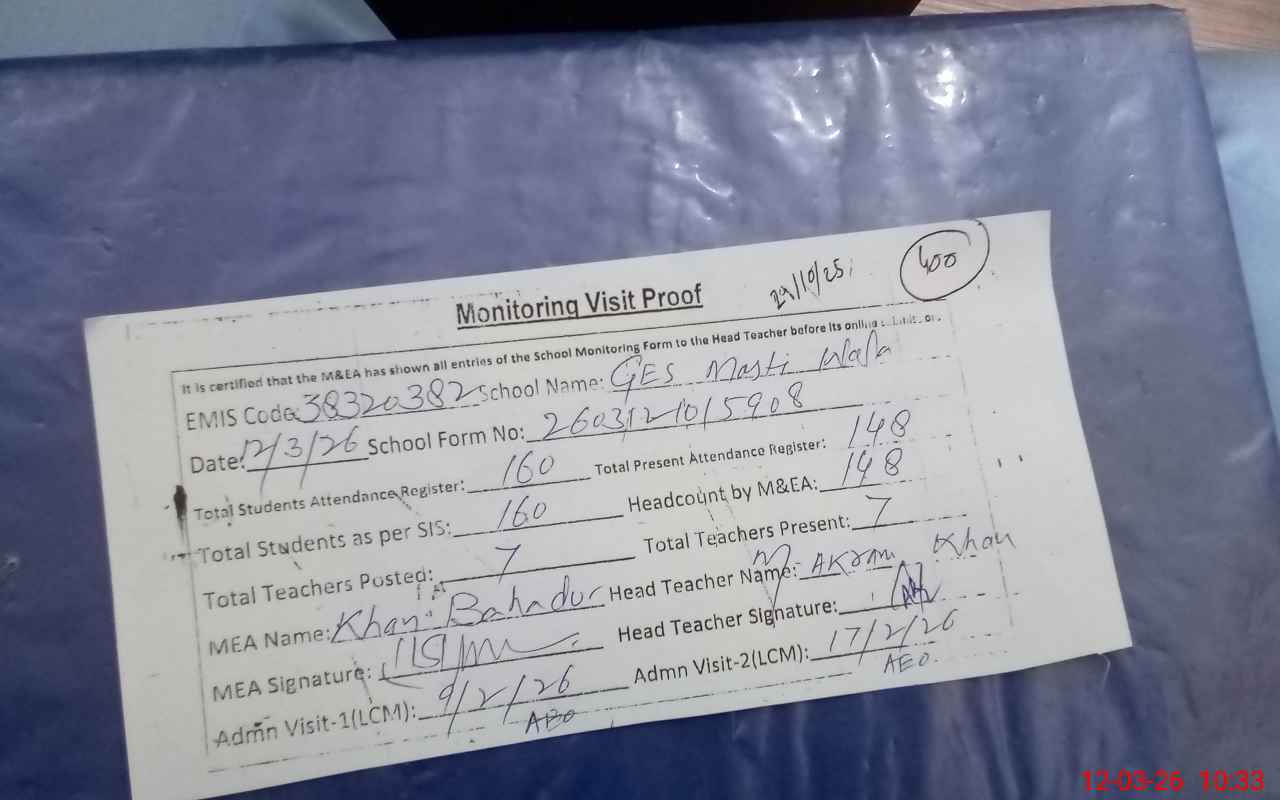 Monitoring Visit Proof
29/10/25
400
It is certified that the M&EA has shown all entries of the School Monitoring Form to the Head Teacher before its online
EMIS Code: 38320382 School Name: GES Masti Wala
Date: 12/3/26 School Form No: 2603121015908
Total Students Attendance Register: 160 Total Present Attendance Register: 148
Total Students as per SIS: 160 Headcount by M&EA: 148
Total Teachers Posted: 7 Total Teachers Present: 7
MEA Name: Khan Bahadur Head Teacher Name: M. AKram Khan
MEA Signature: Head Teacher Signature:
Admn Visit-1(LCM): 9/2/26 Admn Visit-2(LCM): 17/2/26
AEO AEO
12-03-26 10:33